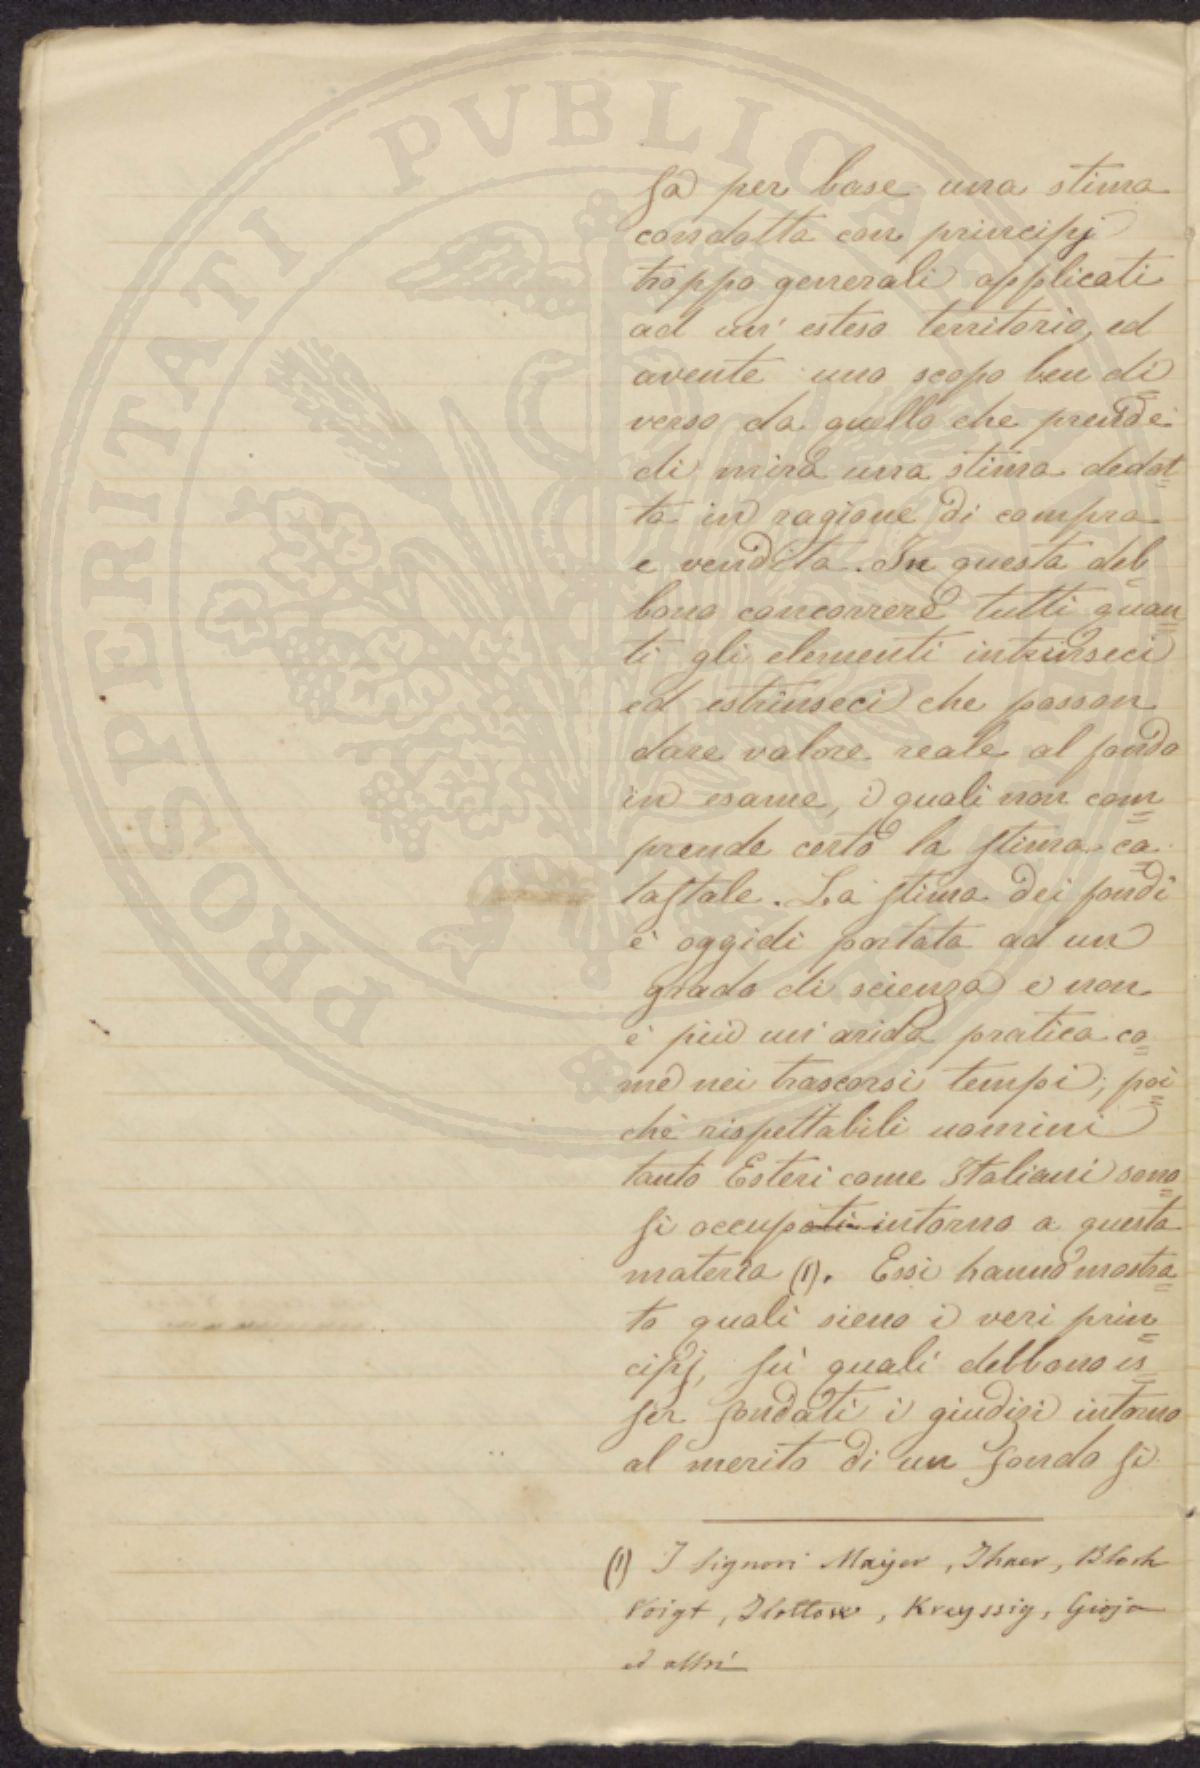 PROSPERITATI PVBLICAE
sa per base una stima
condotta con principj
troppo generali applicati
ad un' esteso territorio, ed
avente uno scopo ben di
verso da quello che prende
di mira una stima dedot
ta in ragione di compra
e vendita. In questa deb
bono concorrere tutti quan
ti gli elementi intrinseci
ed estrinseci che posson
dare valore reale al fondo
in esame, i quali non com
prende certo la stima ca
tastale. La stima dei fondi
è oggidi portata ad un
grado di scienza e non
è più un' arida pratica co
me nei trascorsi tempi; poi
chè rispettabili uomini
tanto Esteri come Italiani sono
si occupati intorno a questa
materia (1). Essi hanno mostra
to quali sieno i veri prin
cipj, su quali debbono es
ser fondati i giudizi intorno
al merito di un fondo si
(1) I Signori Mayer, Thaer, Block
Voigt, Flottow, Kreyssig, Gioja
ed altri